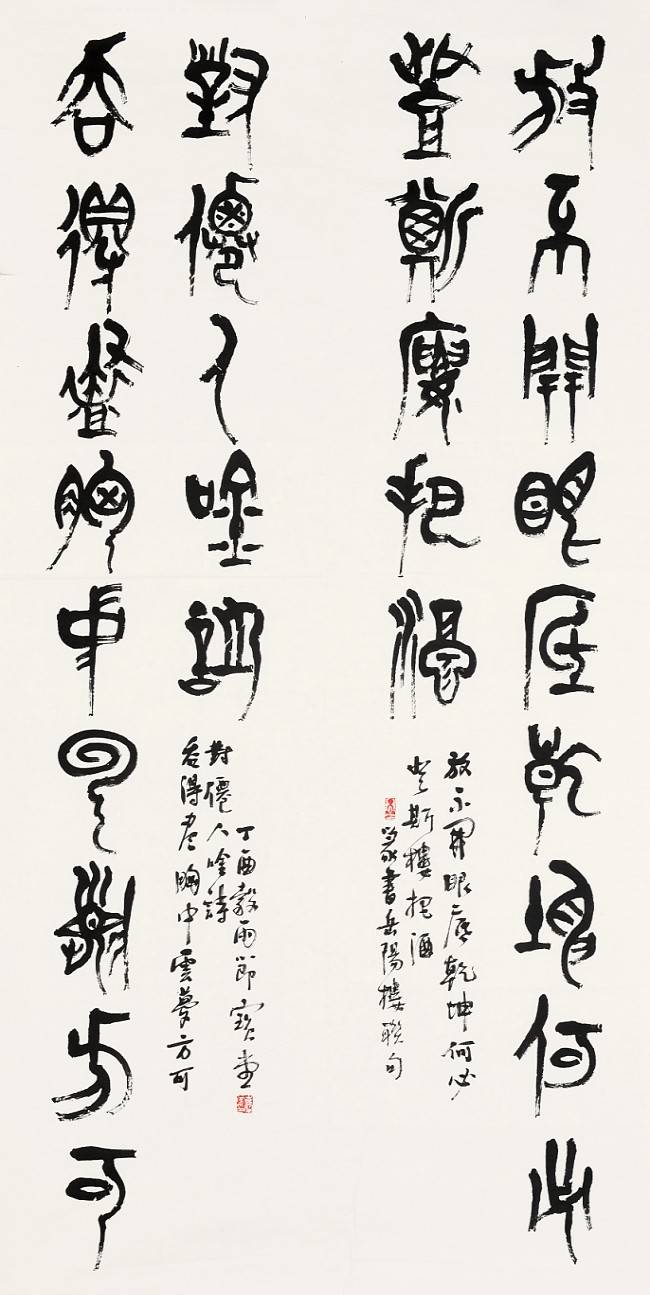 放不開眼底乾坤何必
登斯樓把酒
放不開眼底乾坤何必
登斯樓把酒
篆書岳陽樓聯句
吞得盡胸中雲夢方可
對僊人吟詩
吞得盡胸中雲夢方可
對僊人吟詩
丁酉穀雨節寶